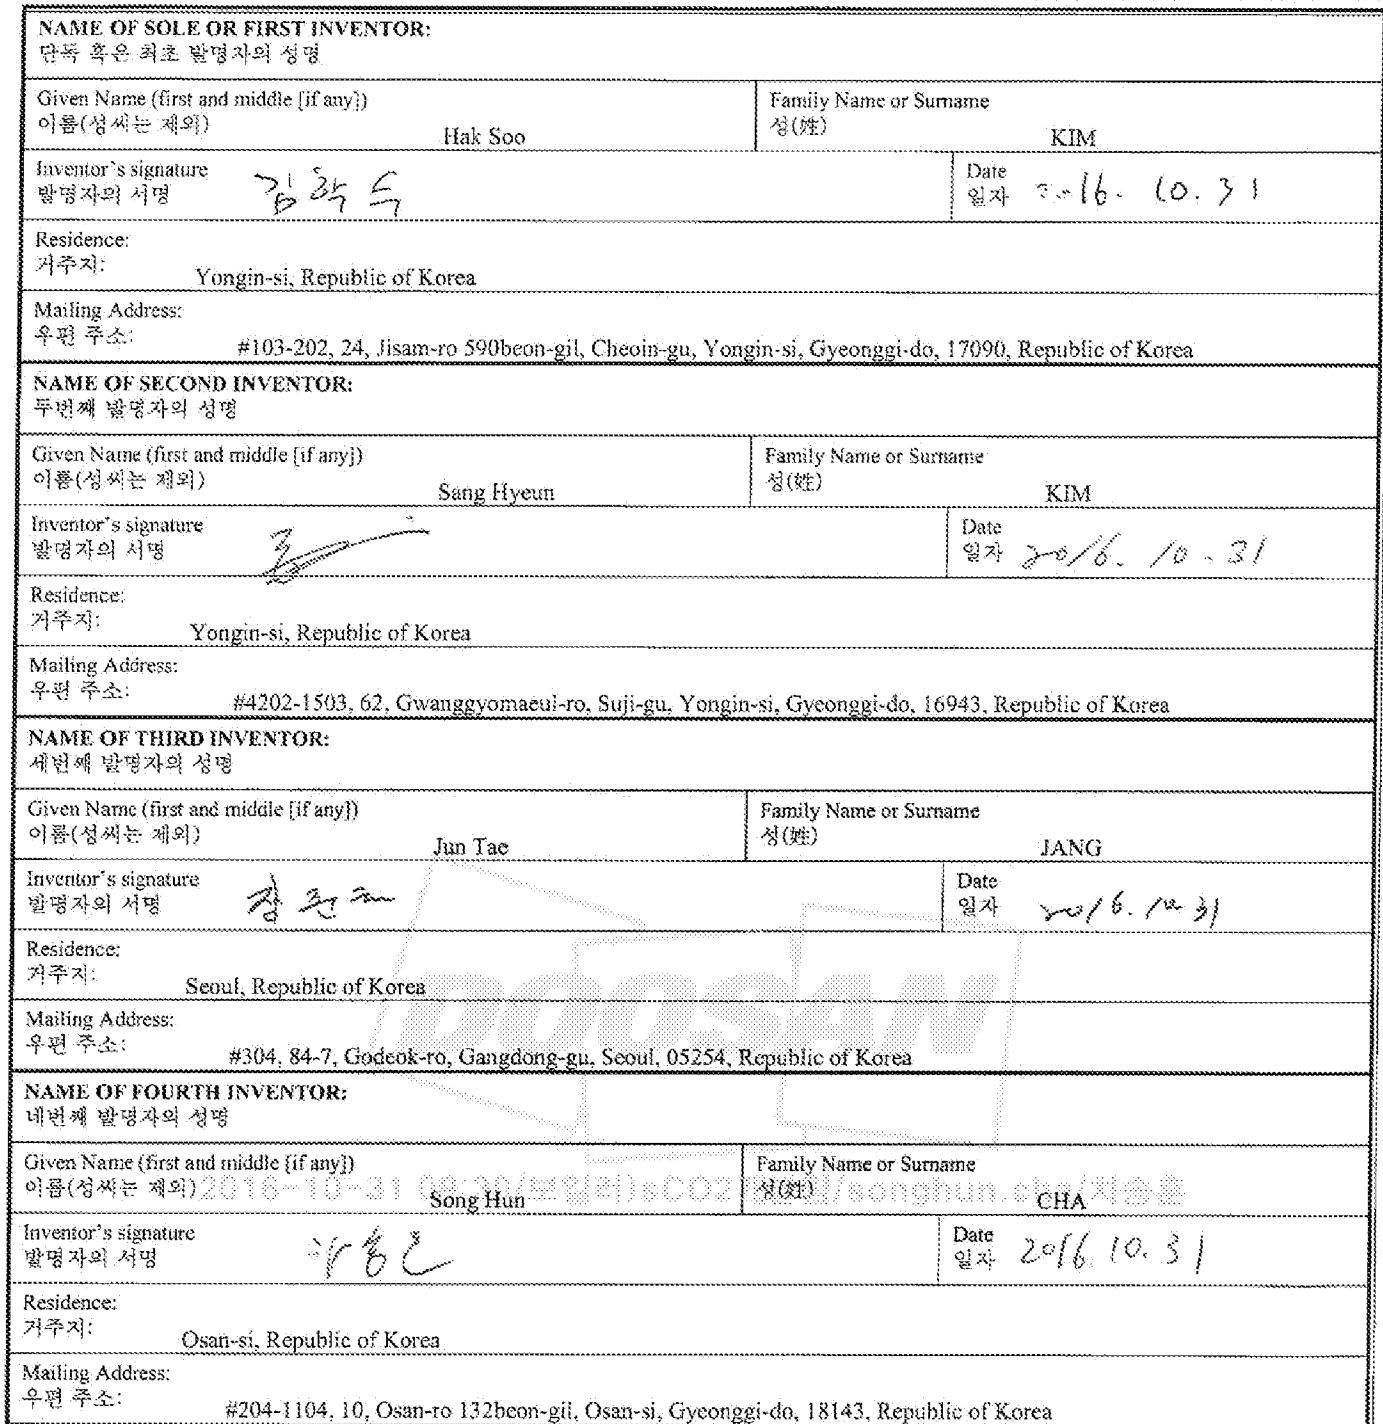 NAME OF SOLE OR FIRST INVENTOR:
단독 혹은 최초 발명자의 성명
Given Name (first and middle [if any])
이름(성씨는 제외) Hak Soo
Family Name or Surname
성(姓) KIM
Inventor's signature
발명자의 서명 김학수
Date
일자 2016. 10. 31
Residence:
거주지: Yongin-si, Republic of Korea
Mailing Address:
우편 주소: #103-202, 24, Jisam-ro 590beon-gil, Cheoin-gu, Yongin-si, Gyeonggi-do, 17090, Republic of Korea
NAME OF SECOND INVENTOR:
두번째 발명자의 성명
Given Name (first and middle [if any])
이름(성씨는 제외) Sang Hyeun
Family Name or Surname
성(姓) KIM
Inventor's signature
발명자의 서명
Date
일자 2016. 10. 31
Residence:
거주지: Yongin-si, Republic of Korea
Mailing Address:
우편 주소: #4202-1503, 62, Gwanggyomaeul-ro, Suji-gu, Yongin-si, Gyeonggi-do, 16943, Republic of Korea
NAME OF THIRD INVENTOR:
세번째 발명자의 성명
Given Name (first and middle [if any])
이름(성씨는 제외) Jun Tae
Family Name or Surname
성(姓) JANG
Inventor's signature
발명자의 서명 장준태
Date
일자 2016. 10 31
Residence:
거주지: Seoul, Republic of Korea
DOOSAN
Mailing Address:
우편 주소: #304, 84-7, Godeok-ro, Gangdong-gu, Seoul, 05254, Republic of Korea
NAME OF FOURTH INVENTOR:
네번째 발명자의 성명
Given Name (first and middle [if any])
이름(성씨는 제외) Song Hun
Family Name or Surname
성(姓) CHA
2016-10-31 08:30/보일러)sCO2 /songhun.cha/차송훈
Inventor's signature
발명자의 서명 차송훈
Date
일자 2016. 10. 31
Residence:
거주지: Osan-si, Republic of Korea
Mailing Address:
우편 주소: #204-1104, 10, Osan-ro 132beon-gil, Osan-si, Gyeonggi-do, 18143, Republic of Korea